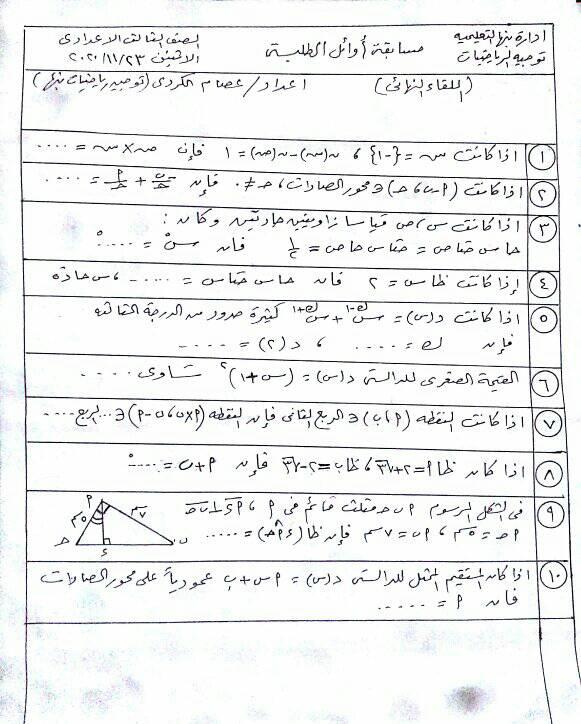 ادارة بنها التعليمية
توجيه الرياضيات
مسابقة أوائل الطلبة
الصف الثالث الاعدادى
الاثنين ٢٠٢٠/١١/٢٣
(اللقاء النهائى)
اعداد/ عصام الكردى (توجيه رياضيات بنها)
١ اذا كانت س = {-١} ، ن(س) - ن(ص) = ١ فإن ص × س = ....
٢ اذا كانت (٢ - ب ، حـ) ∈ محور الصادات ، حـ ≠ ٠ فإن ب/حـ + ٢/حـ = ....
٣ اذا كانت س ، ص قياسا زاويتين حادتين وكان :
حاس حتاص = حتاس حاص = ١/٢ فان س° = .....°
٤ إذا كانت ظاس = ٢ فان حاس حتاس = ..... ، س حادة
٥ اذا كانت د(س) = س^(ك-١) + س^(ك+١) كثيرة حدود من الدرجة الثالثة
فإن ك = ..... ، د(٢) = .....
٦ القيمة الصغرى للدالة د(س) = (س+١)^٢ تساوى .....
٧ اذا كانت النقطة (أ ، ب) ∈ الربع الثانى فإن النقطة (أ×ب ، ب-أ) ∈ ... الربع ....
٨ اذا كان ظاأ = ٢+√٣ ، ظاب = ٢-√٣ فإن أ+ب = .....°
٩ فى الشكل المرسوم أ ب حـ مثلث قائم فى أ ، أء ⊥ ب حـ
أحـ = ٥سم ، أب = ٧سم فإن ظا(ء أ حـ) = .....
أ
٧سم
٥سم
حـ
ء
ب
١٠ اذا كان المستقيم الممثل للدالة د(س) = أس + ب عمودياً على محور الصادات
فان أ = .....